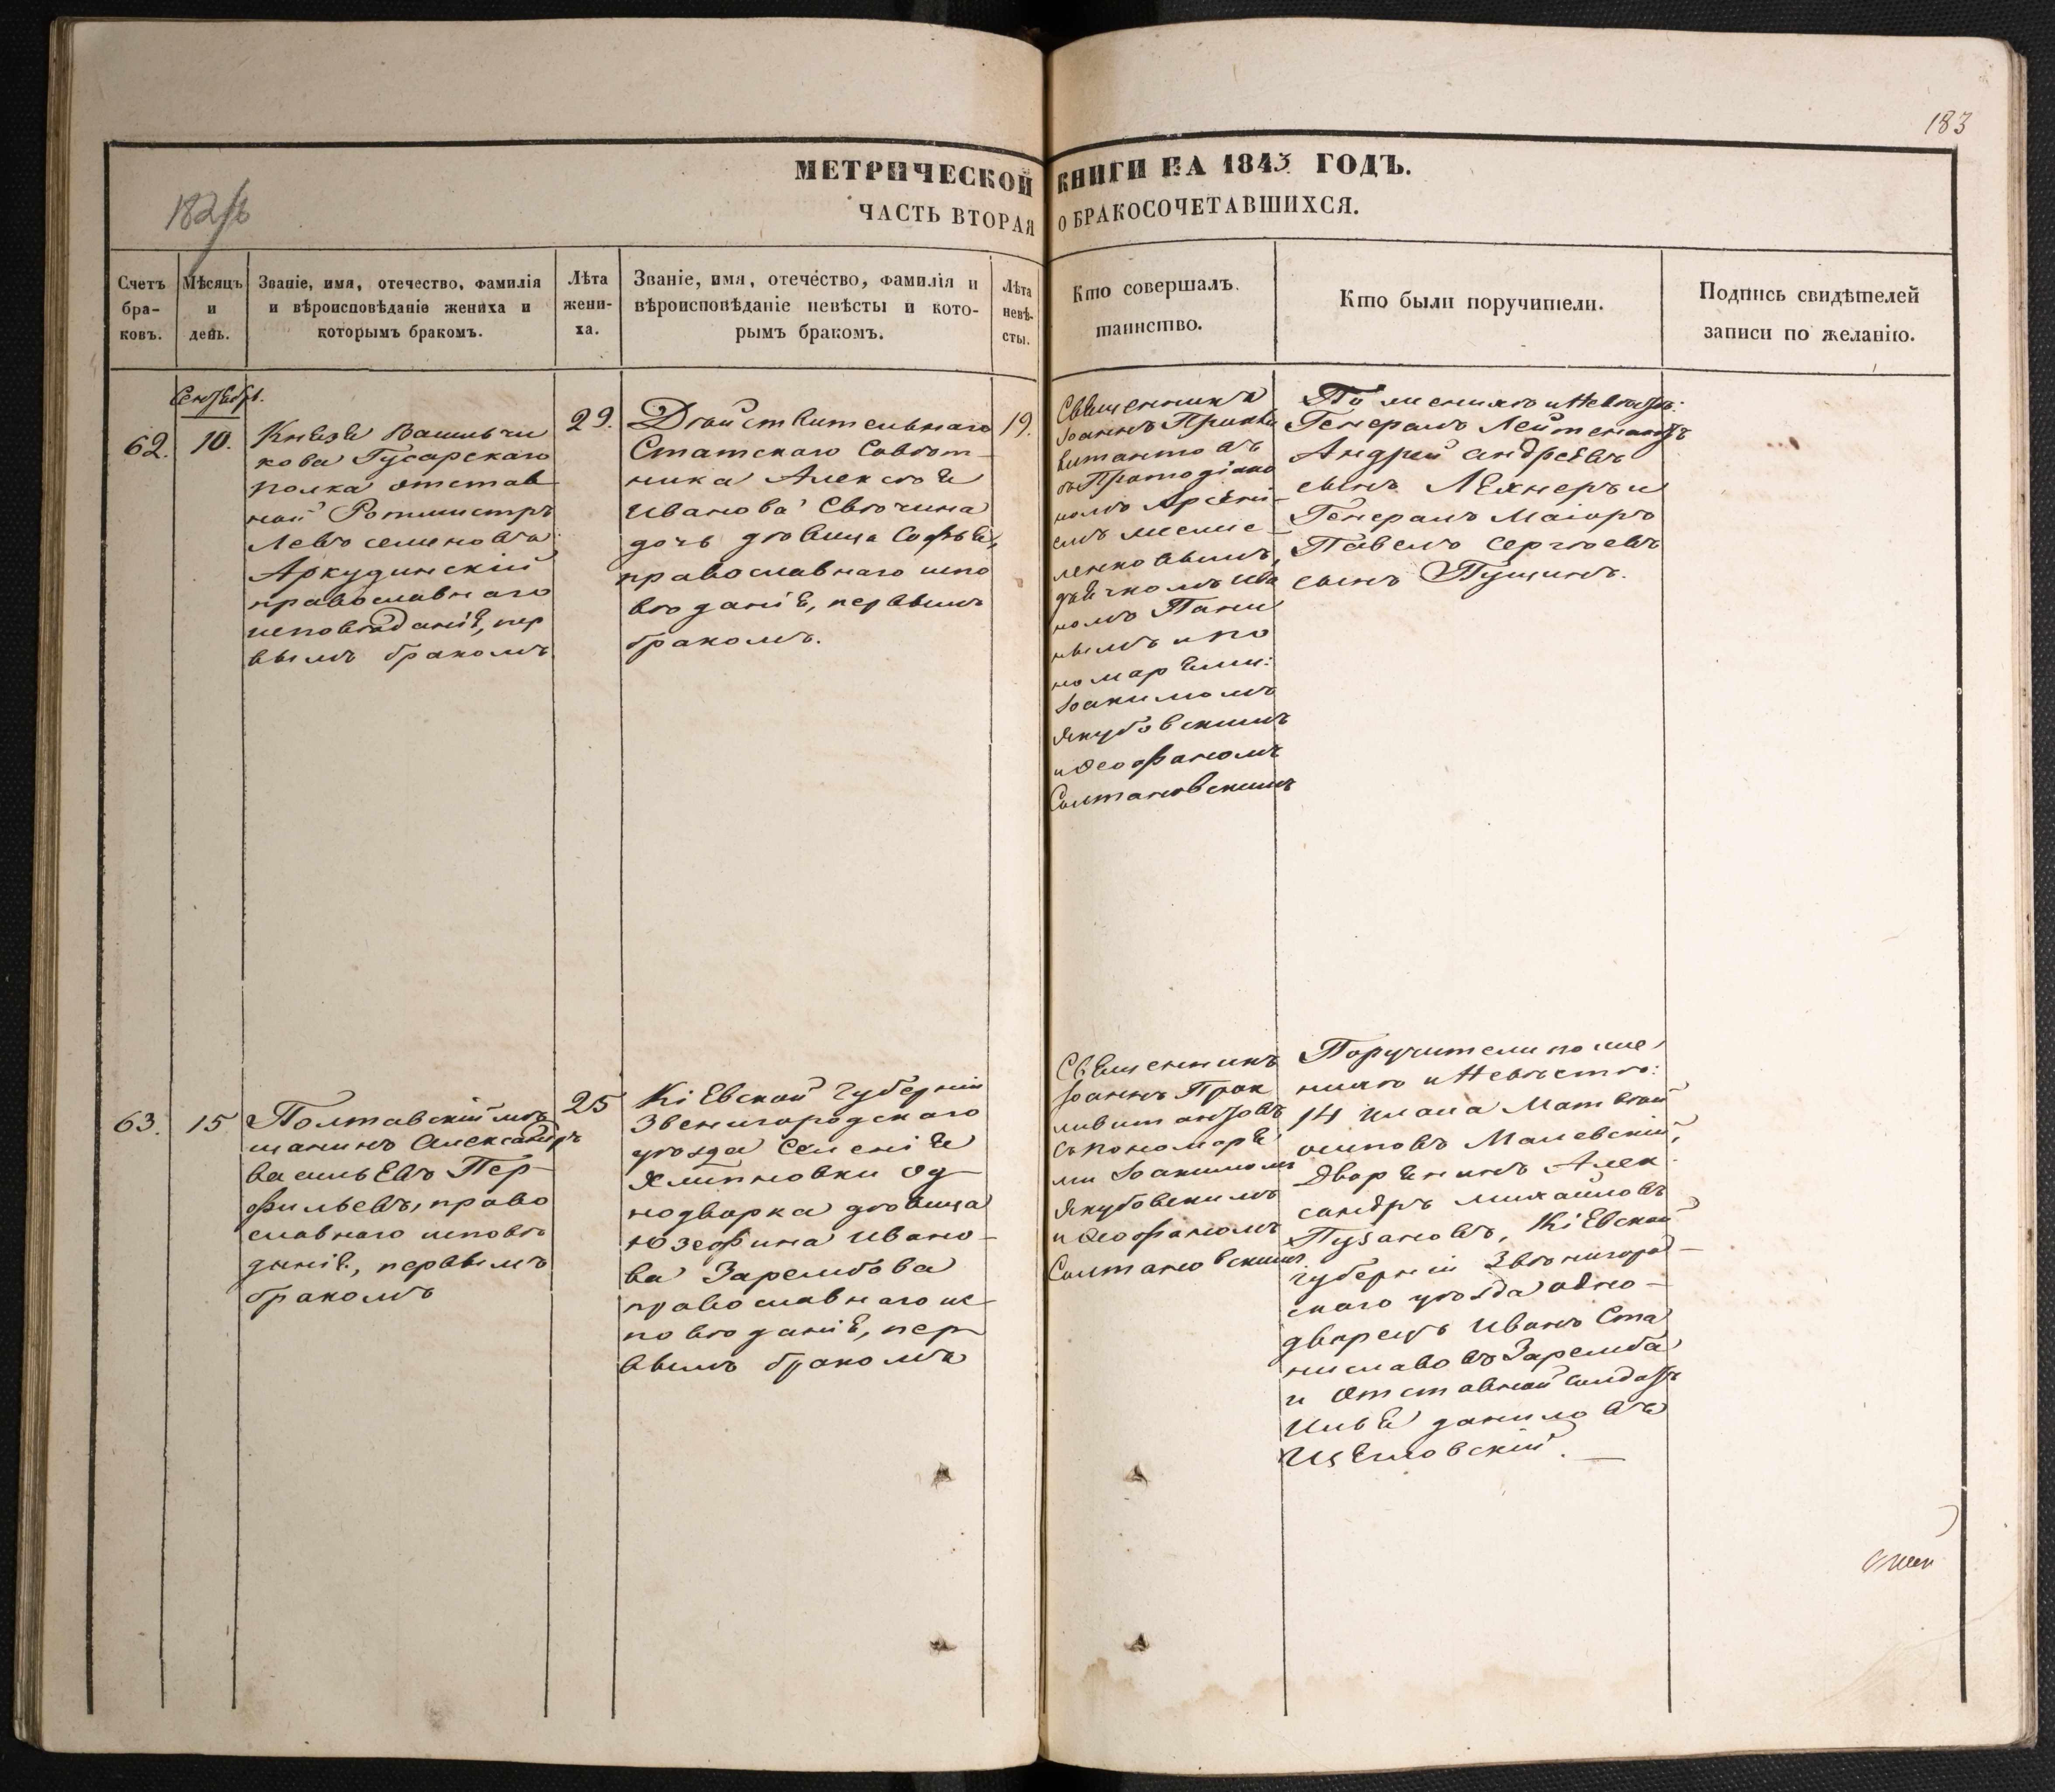 183
МЕТРИЧЕСКОЙ КНИГИ НА 1843 ГОДЪ.
ЧАСТЬ ВТОРАЯ О БРАКОСОЧЕТАВШИХСЯ.
Счетъ
бра-
ковъ.
Мѣсяцъ
и
день.
Званіе, имя, отечество, фамилія
и вѣроисповѣданіе жениха и
которымъ бракомъ.
Лѣта
жени-
ха.
Званіе, имя, отечество, фамилія и
вѣроисповѣданіе невѣсты и кото-
рымъ бракомъ.
Лѣта
невѣ-
сты.
Кто совершалъ
таинство.
Кто были поручители.
Подпись свидѣтелей
записи по желанію.
Сентябрь.
62.
10.
Князя Васильчи
кова Гусарскаго
полка отстав
ной Ротмистръ
Левъ семеновъ
Аркудинскій
православнаго
исповѣданія, пер
вымъ бракомъ.
29.
Дѣйствительнаго
Статскаго Совѣт-
ника Алексѣя
Иванова Свѣчина
дочь дѣвица Софья,
православнаго испо
вѣданія, первымъ
бракомъ.
19.
Священникъ
Іоаннъ
съ Протодіако
номъ Арсені-
емъ
номъ
нымъ и по
номарями:
Іоакимомъ
Якубовскимъ
и Ѳеофаномъ
Солтановскимъ
По женихѣ и Невѣстѣ:
Генералъ Лейтенантъ
Андрей андреевъ
сынъ Лехнеръ и
Генералъ Маіоръ
Павелъ сергѣевъ
сынъ Пущинъ.
63.
15
Полтавскій мѣ
щанинъ Александръ
васильевъ Пер-
фильевъ, право
славнаго исповѣ
данія, первымъ
бракомъ
25
Кіевской губерніи
Звенигородскаго
уѣзда Селенія
Хлипновки од-
нодворка дѣвица
Юзефина Ивано-
ва Зарембова
православнаго ис-
повѣданія, пер
вымъ бракомъ
Священникъ
Іоаннъ
съ пономаря
ми Іоакимомъ
Якубовскимъ
и Ѳеофаномъ
Солтановскимъ
Поручители по же
нихѣ и Невѣстѣ:
14 класа Матвѣй
осиповъ Малевскій,
Дворянинъ Алек
сандръ михайловъ
Пузановъ, Кіевской
губерніи Звѣнигород-
скаго уѣзда одно-
дворецъ Иванъ Ста
ниславовъ Заремба
и Отставной солдатъ
Илья даниловъ